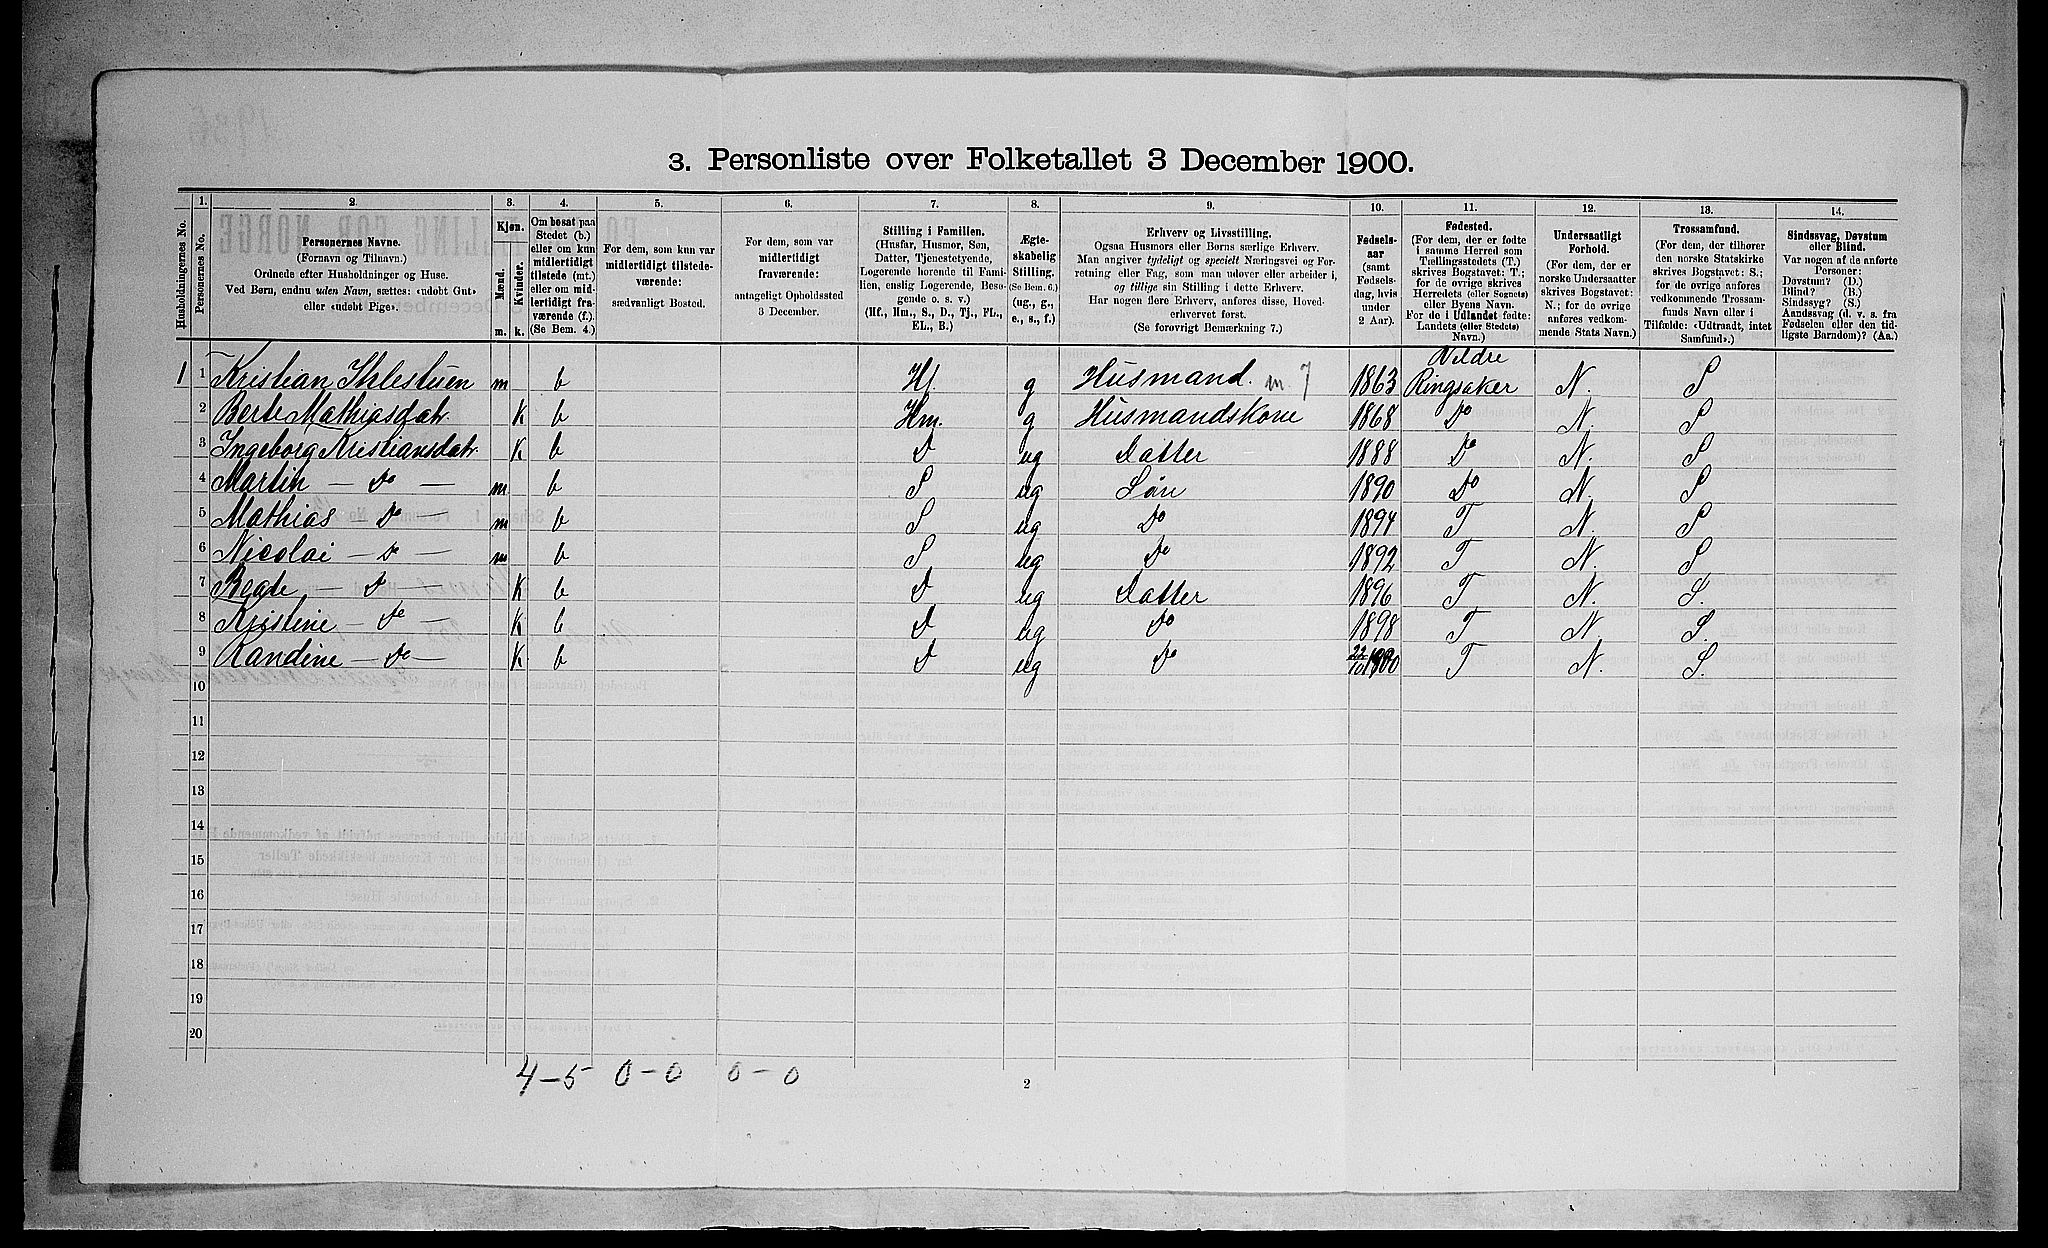 3. Personliste over Folketallet 3 December 1900.
Husholdningernes No.
1. Personernes No.
2. Personernes Navne. (Fornavn og Tilnavn.) Ordnede efter Husholdninger og Huse. Ved Børn, endnu uden Navn, sættes: «udøbt Gut» eller «udøbt Pige».
3. Kjøn. Mænd. m. Kvinder. k.
4. Om bosat paa Stedet (b.) eller om kun midlertidigt tilstede (mt.) eller om midlertidigt fraværende (f.). (Se Bem. 4.)
5. For dem, som kun var midlertidigt tilstedeværende: sædvanligt Bosted.
6. For dem, som var midlertidigt fraværende: antageligt Opholdssted 3 December.
7. Stilling i Familien. (Husfar, Husmor, Søn, Datter, Tjenestetyende, Logerende hørende til Familien, enslig Logerende, Besøgende o. s. v.) (Hf., Hm., S., D., Tj., FL., EL., B.)
8. Ægteskabelig Stilling. (Se Bem. 6.) (ug., g., e., s., f.)
9. Erhverv og Livsstilling. Ogsaa Husmors eller Børns særlige Erhverv. Man angiver tydeligt og specielt Næringsvei og Forretning eller Fag, som man udøver eller arbeider i, og tillige sin Stilling i dette Erhverv. Har nogen flere Erhverv, anføres disse, Hovederhvervet først. (Se forøvrigt Bemærkning 7.)
10. Fødselsaar (samt Fødselsdag, hvis under 2 Aar).
11. Fødested. (For dem, der er fødte i samme Herred som Tællingsstedets (T.) skrives Bogstavet: T.; for de øvrige skrives Herredets (eller Sognets) eller Byens Navn. For de i Udlandet fødte: Landets (eller Stedets) Navn.)
12. Undersaatligt Forhold. (For dem, der er norske Undersaatter skrives Bogstavet: N.; for de øvrige anføres vedkommende Stats Navn.)
13. Trossamfund. (For dem, der tilhører den norske Statskirke skrives Bogstavet: S.; for de øvrige anføres vedkommende Trossamfunds Navn eller i Tilfælde: «Udtraadt, intet Samfund».)
14. Sindssvag, Døvstum eller Blind. Var nogen af de anførte Personer: Døvstum? (D.) Blind? (B.) Sindssyg? (S.) Aandssvag (d. v. s. fra Fødselen eller den tidligste Barndom)? (Aa.)
1 1 Kristian m b Hf. g Husmand. m. 7 1863 Veldre Ringsaker N. S
2 Berte Mathiasdatr. K b Hm. g Husmandskone 1868 Do N. S
3 Ingeborg Kristiansdatr. K b D ug Datter 1888 Do N. S
4 Martin — Do — m b S ug Søn 1890 Do N. S
5 Mathias — Do — m b S ug Do 1894 T N. S
6 Nicolai — Do — m b S ug Do 1892 T N. S
7 Beate — Do — K b D ug Datter 1896 T N. S.
8 Kristine — Do — K b D ug Do 1898 T N. S.
9 Randine — Do — K b D ug Do 22/10 1900 T N. S.
10
11
12
13
14
15
16
17
18
19
20
4 – 5 0 – 0 0 – 0
2